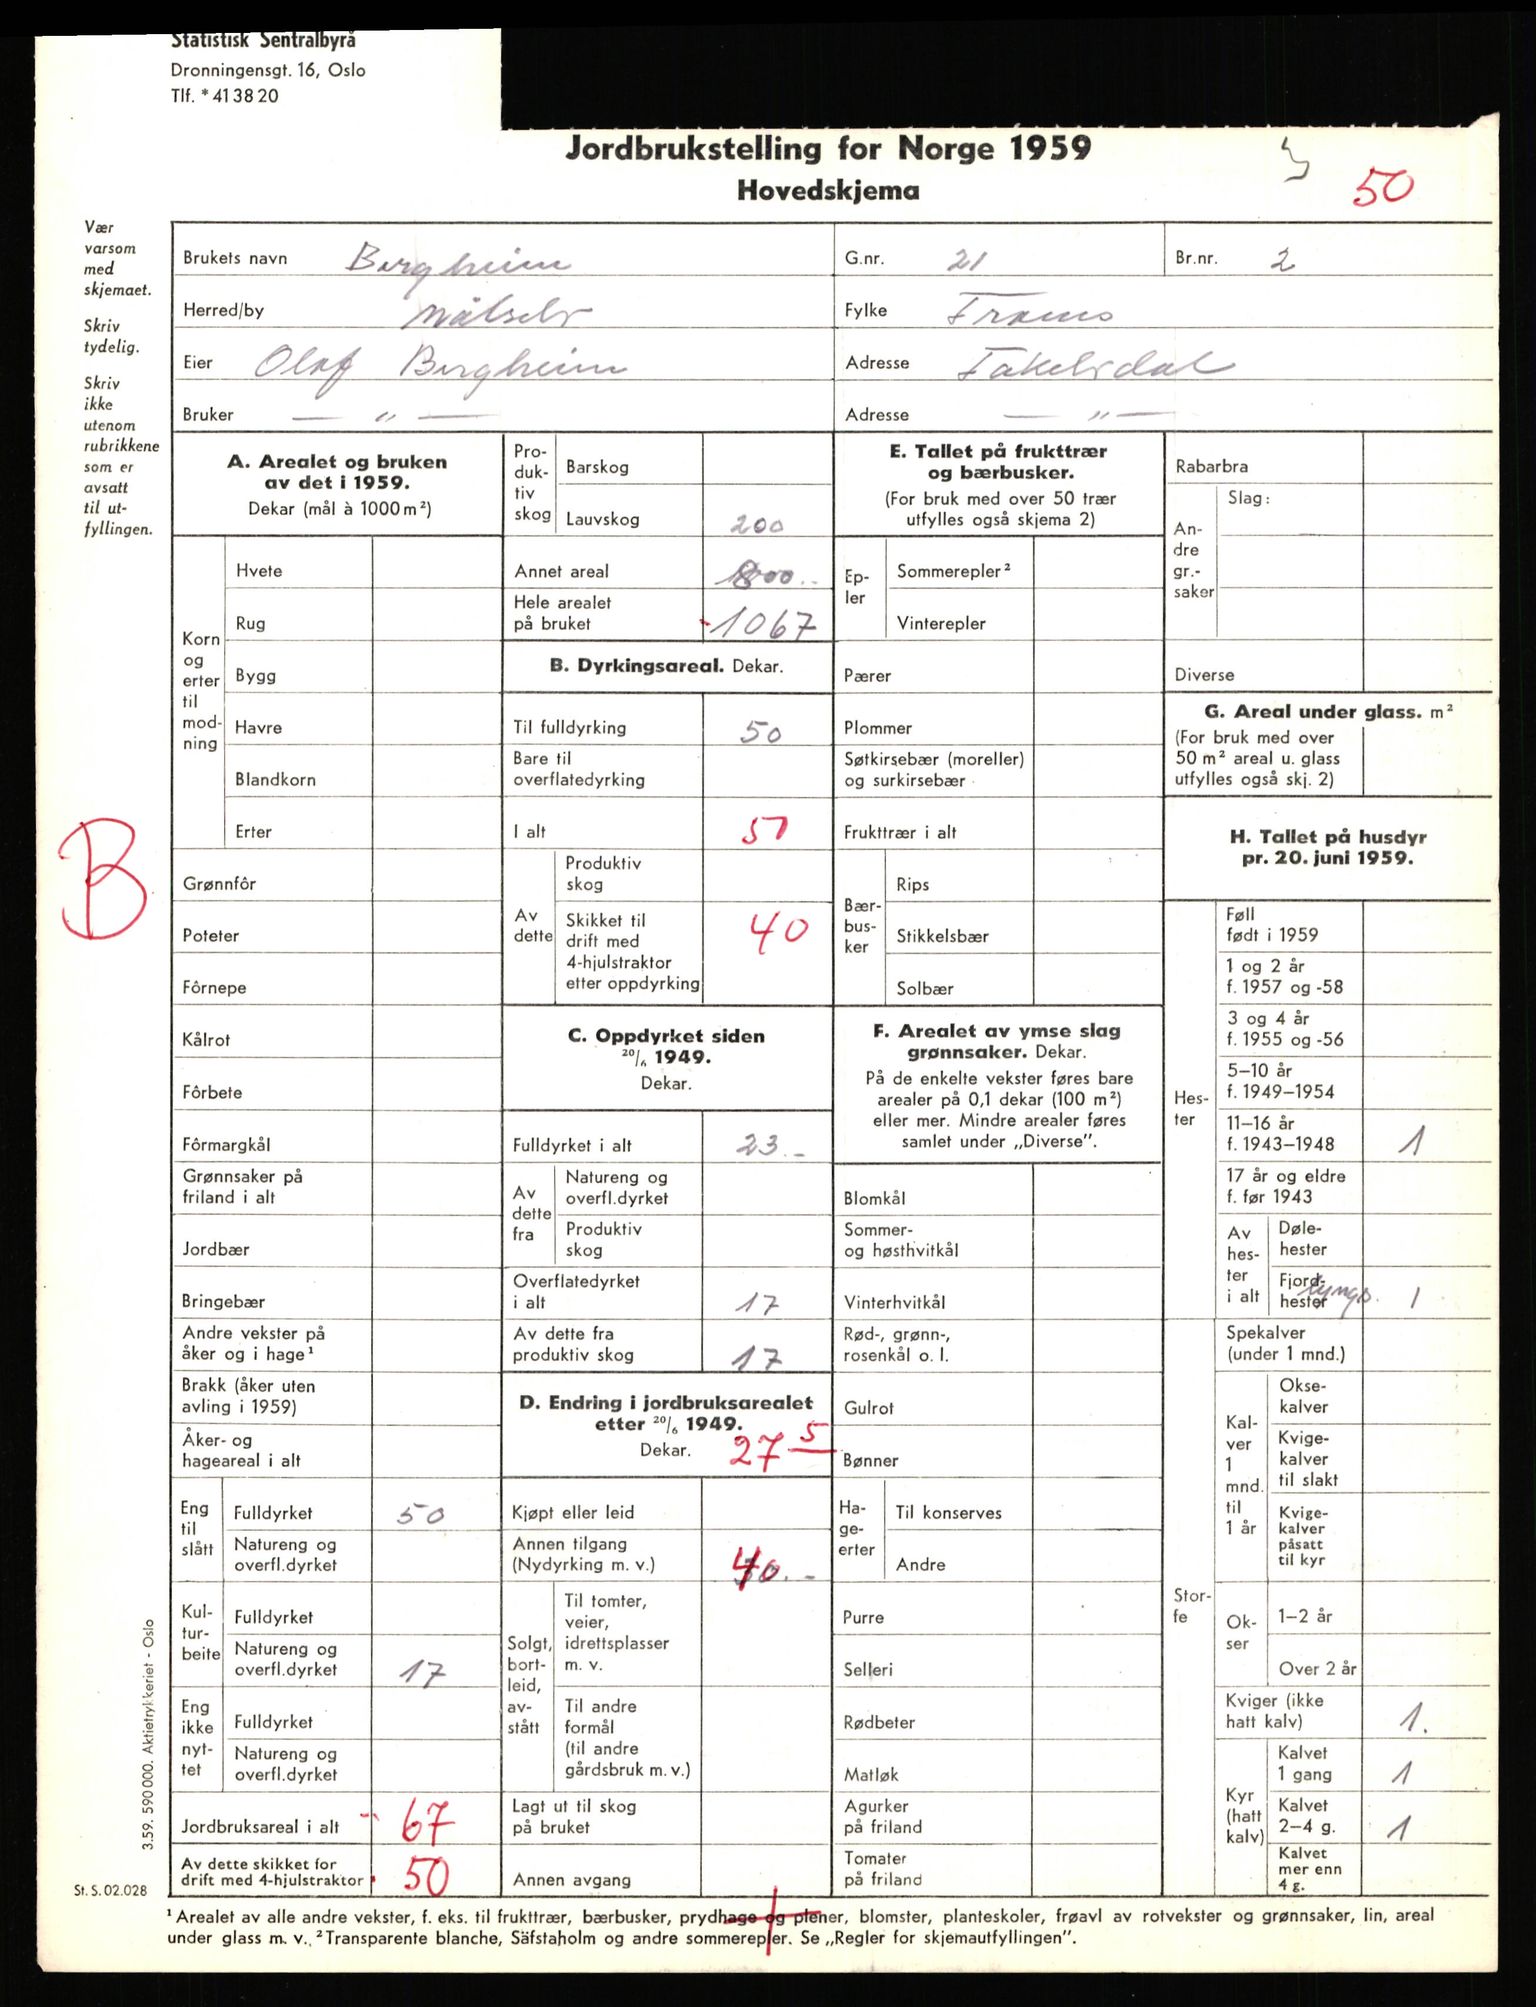 Statistisk Sentralbyrå
Dronningensgt. 16, Oslo
Tlf. * 41 38 20
Jordbrukstelling for Norge 1959
Hovedskjema
50
Vær
varsom
med
skjemaet.
Skriv
tydelig.
Skriv
ikke
utenom
rubrikkene
som er
avsatt
til ut-
fyllingen.
Brukets navn Bergheim G.nr. 21 Br.nr. 2
Herred/by Målselv Fylke Troms
Eier Olaf Bergheim Adresse Takelvdal
Bruker — „ — Adresse — „ —
B
A. Arealet og bruken
av det i 1959.
Dekar (mål à 1000 m²)
Korn
og
erter
til
mod-
ning
Hvete
Rug
Bygg
Havre
Blandkorn
Erter
Grønnfôr
Poteter
Fôrnepe
Kålrot
Fôrbete
Fôrmargkål
Grønnsaker på
friland i alt
Jordbær
Bringebær
Andre vekster på
åker og i hage¹
Brakk (åker uten
avling i 1959)
Åker- og
hageareal i alt
Eng
til
slått
Fulldyrket 50
Natureng og
overfl.dyrket
Kul-
tur-
beite
Fulldyrket
Natureng og
overfl.dyrket 17
Eng
ikke
nyt-
tet
Fulldyrket
Natureng og
overfl.dyrket
Jordbruksareal i alt 67
Av dette skikket for
drift med 4-hjulstraktor 50
Pro-
duk-
tiv
skog
Barskog
Lauvskog 200
Annet areal 800
Hele arealet
på bruket 1067
B. Dyrkingsareal. Dekar.
Til fulldyrking 50
Bare til
overflatedyrking
I alt 50
Av
dette
Produktiv
skog
Skikket til
drift med
4-hjulstraktor
etter oppdyrking 40
C. Oppdyrket siden
20/6 1949.
Dekar.
Fulldyrket i alt 23.-
Av
dette
fra
Natureng og
overfl.dyrket
Produktiv
skog
Overflatedyrket
i alt 17
Av dette fra
produktiv skog 17
D. Endring i jordbruksarealet
etter 20/6 1949.
Dekar. 27 5
Kjøpt eller leid
Annen tilgang
(Nydyrking m. v.) 40.-
Solgt,
bort-
leid,
av-
stått
Til tomter,
veier,
idrettsplasser
m. v.
Til andre
formål
(til andre
gårdsbruk m. v.)
Lagt ut til skog
på bruket
Annen avgang
E. Tallet på frukttrær
og bærbusker.
(For bruk med over 50 trær
utfylles også skjema 2)
Ep-
ler
Sommerepler ²
Vinterepler
Pærer
Plommer
Søtkirsebær (moreller)
og surkirsebær
Frukttrær i alt
Bær-
bus-
ker
Rips
Stikkelsbær
Solbær
F. Arealet av ymse slag
grønnsaker. Dekar.
På de enkelte vekster føres bare
arealer på 0,1 dekar (100 m²)
eller mer. Mindre arealer føres
samlet under „Diverse”.
Blomkål
Sommer-
og høsthvitkål
Vinterhvitkål
Rød-, grønn-,
rosenkål o. l.
Gulrot
Bønner
Ha-
ge-
erter
Til konserves
Andre
Purre
Selleri
Rødbeter
Matløk
Agurker
på friland
Tomater
på friland
Rabarbra
An-
dre
gr.-
saker
Slag:
Diverse
G. Areal under glass. m²
(For bruk med over
50 m² areal u. glass
utfylles også skj. 2)
H. Tallet på husdyr
pr. 20. juni 1959.
Hes-
ter
Føll
født i 1959
1 og 2 år
f. 1957 og -58
3 og 4 år
f. 1955 og -56
5–10 år
f. 1949–1954
11–16 år
f. 1943–1948 1
17 år og eldre
f. før 1943
Av
hes-
ter
i alt
Døle-
hester
Fjord-
hester lyngs. 1
Stor-
fe
Spekalver
(under 1 mnd.)
Kal-
ver
1
mnd.
til
1 år
Okse-
kalver
Kvige-
kalver
til slakt
Kvige-
kalver
påsatt
til kyr
Ok-
ser
1–2 år
Over 2 år
Kviger (ikke
hatt kalv) 1.
Kyr
(hatt
kalv)
Kalvet
1 gang 1
Kalvet
2–4 g. 1
Kalvet
mer enn
4 g.
3.59. 590 000. Aktietrykkeriet - Oslo
St. S. 02.028
¹ Arealet av alle andre vekster, f. eks. til frukttrær, bærbusker, prydhage og plener, blomster, planteskoler, frøavl av rotvekster og grønnsaker, lin, areal
under glass m. v. ² Transparente blanche, Säfstaholm og andre sommerepler. Se „Regler for skjemautfyllingen”.